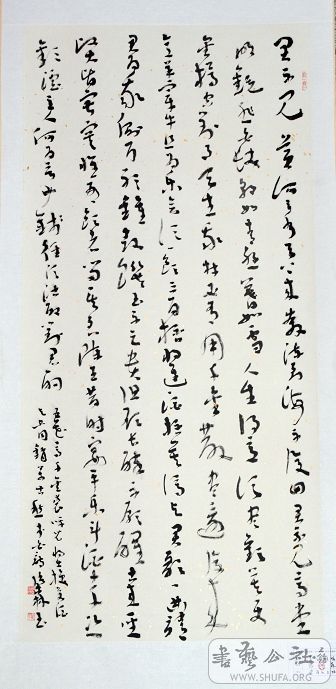 君不见黄河之水天上来奔流到海不复回君不见高堂
明镜悲白发朝如青丝暮如雪人生得意须尽欢莫使
金樽空对月天生我材必有用千金散尽还复来
烹羊宰牛且为乐会须一饮三百杯将进酒杯莫停与君歌一曲请
君为我倾耳听钟鼓馔玉不足贵但愿长醉不愿醒古来圣
贤皆寂寞惟有饮者留其名陈王昔时宴平乐斗酒十千恣
欢谑主人何为言少钱径须沽取对君酌
五花马千金裘呼儿将出换美酒
与尔同销万古愁
書藝公社
WWW.SHUFA.ORG